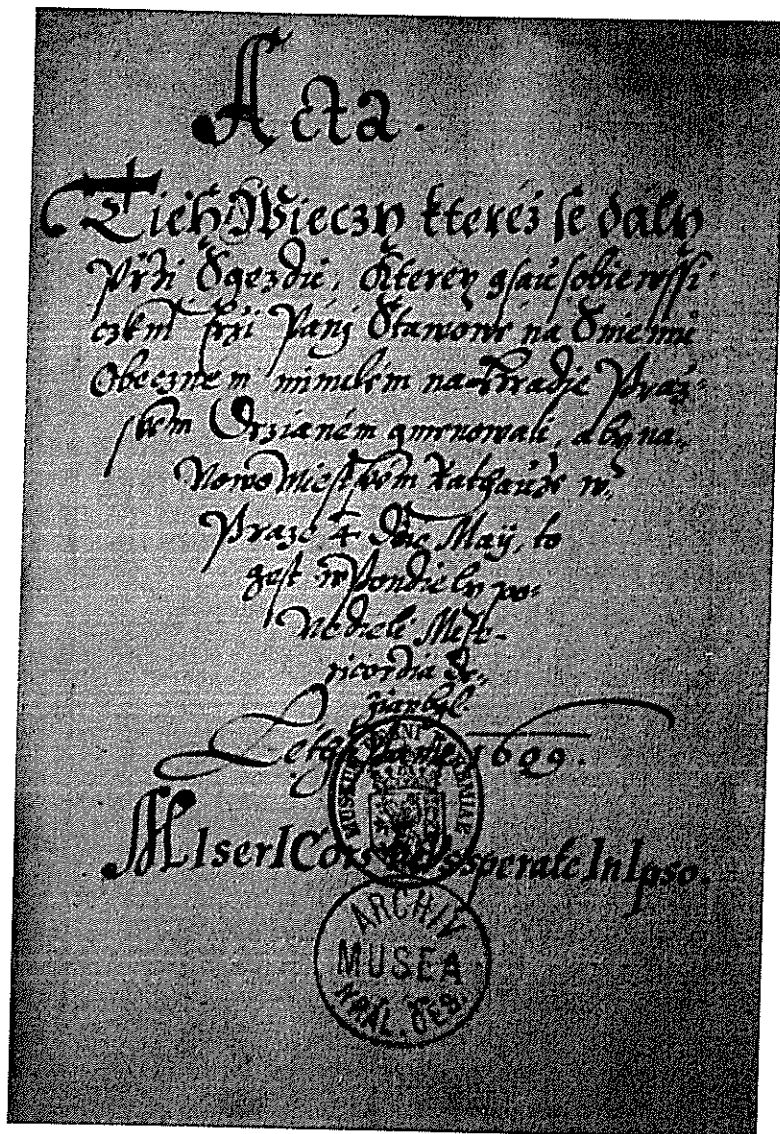 Acta.
Tiech Wieczy kterez se daly
Przi Sgezdu, Kterey gsau sobie wssi-
czkni trzi Pani Stawowe na Sniemu
Obecznem minulem na Hradie Praz-
skem Drzianem gmenowali, aby na
Nowo Miestskem Rathauze w
Praze 4 Die Maÿ, to
gest w Pondiely po
Nedieli Mise-
ricordia D.
zian byl.
Letha 1609.
MIserICors sperate In Ipso.
MUSEUM BOHEMIAE
ARCHIV
MUSEA
KRÁL. ČES.